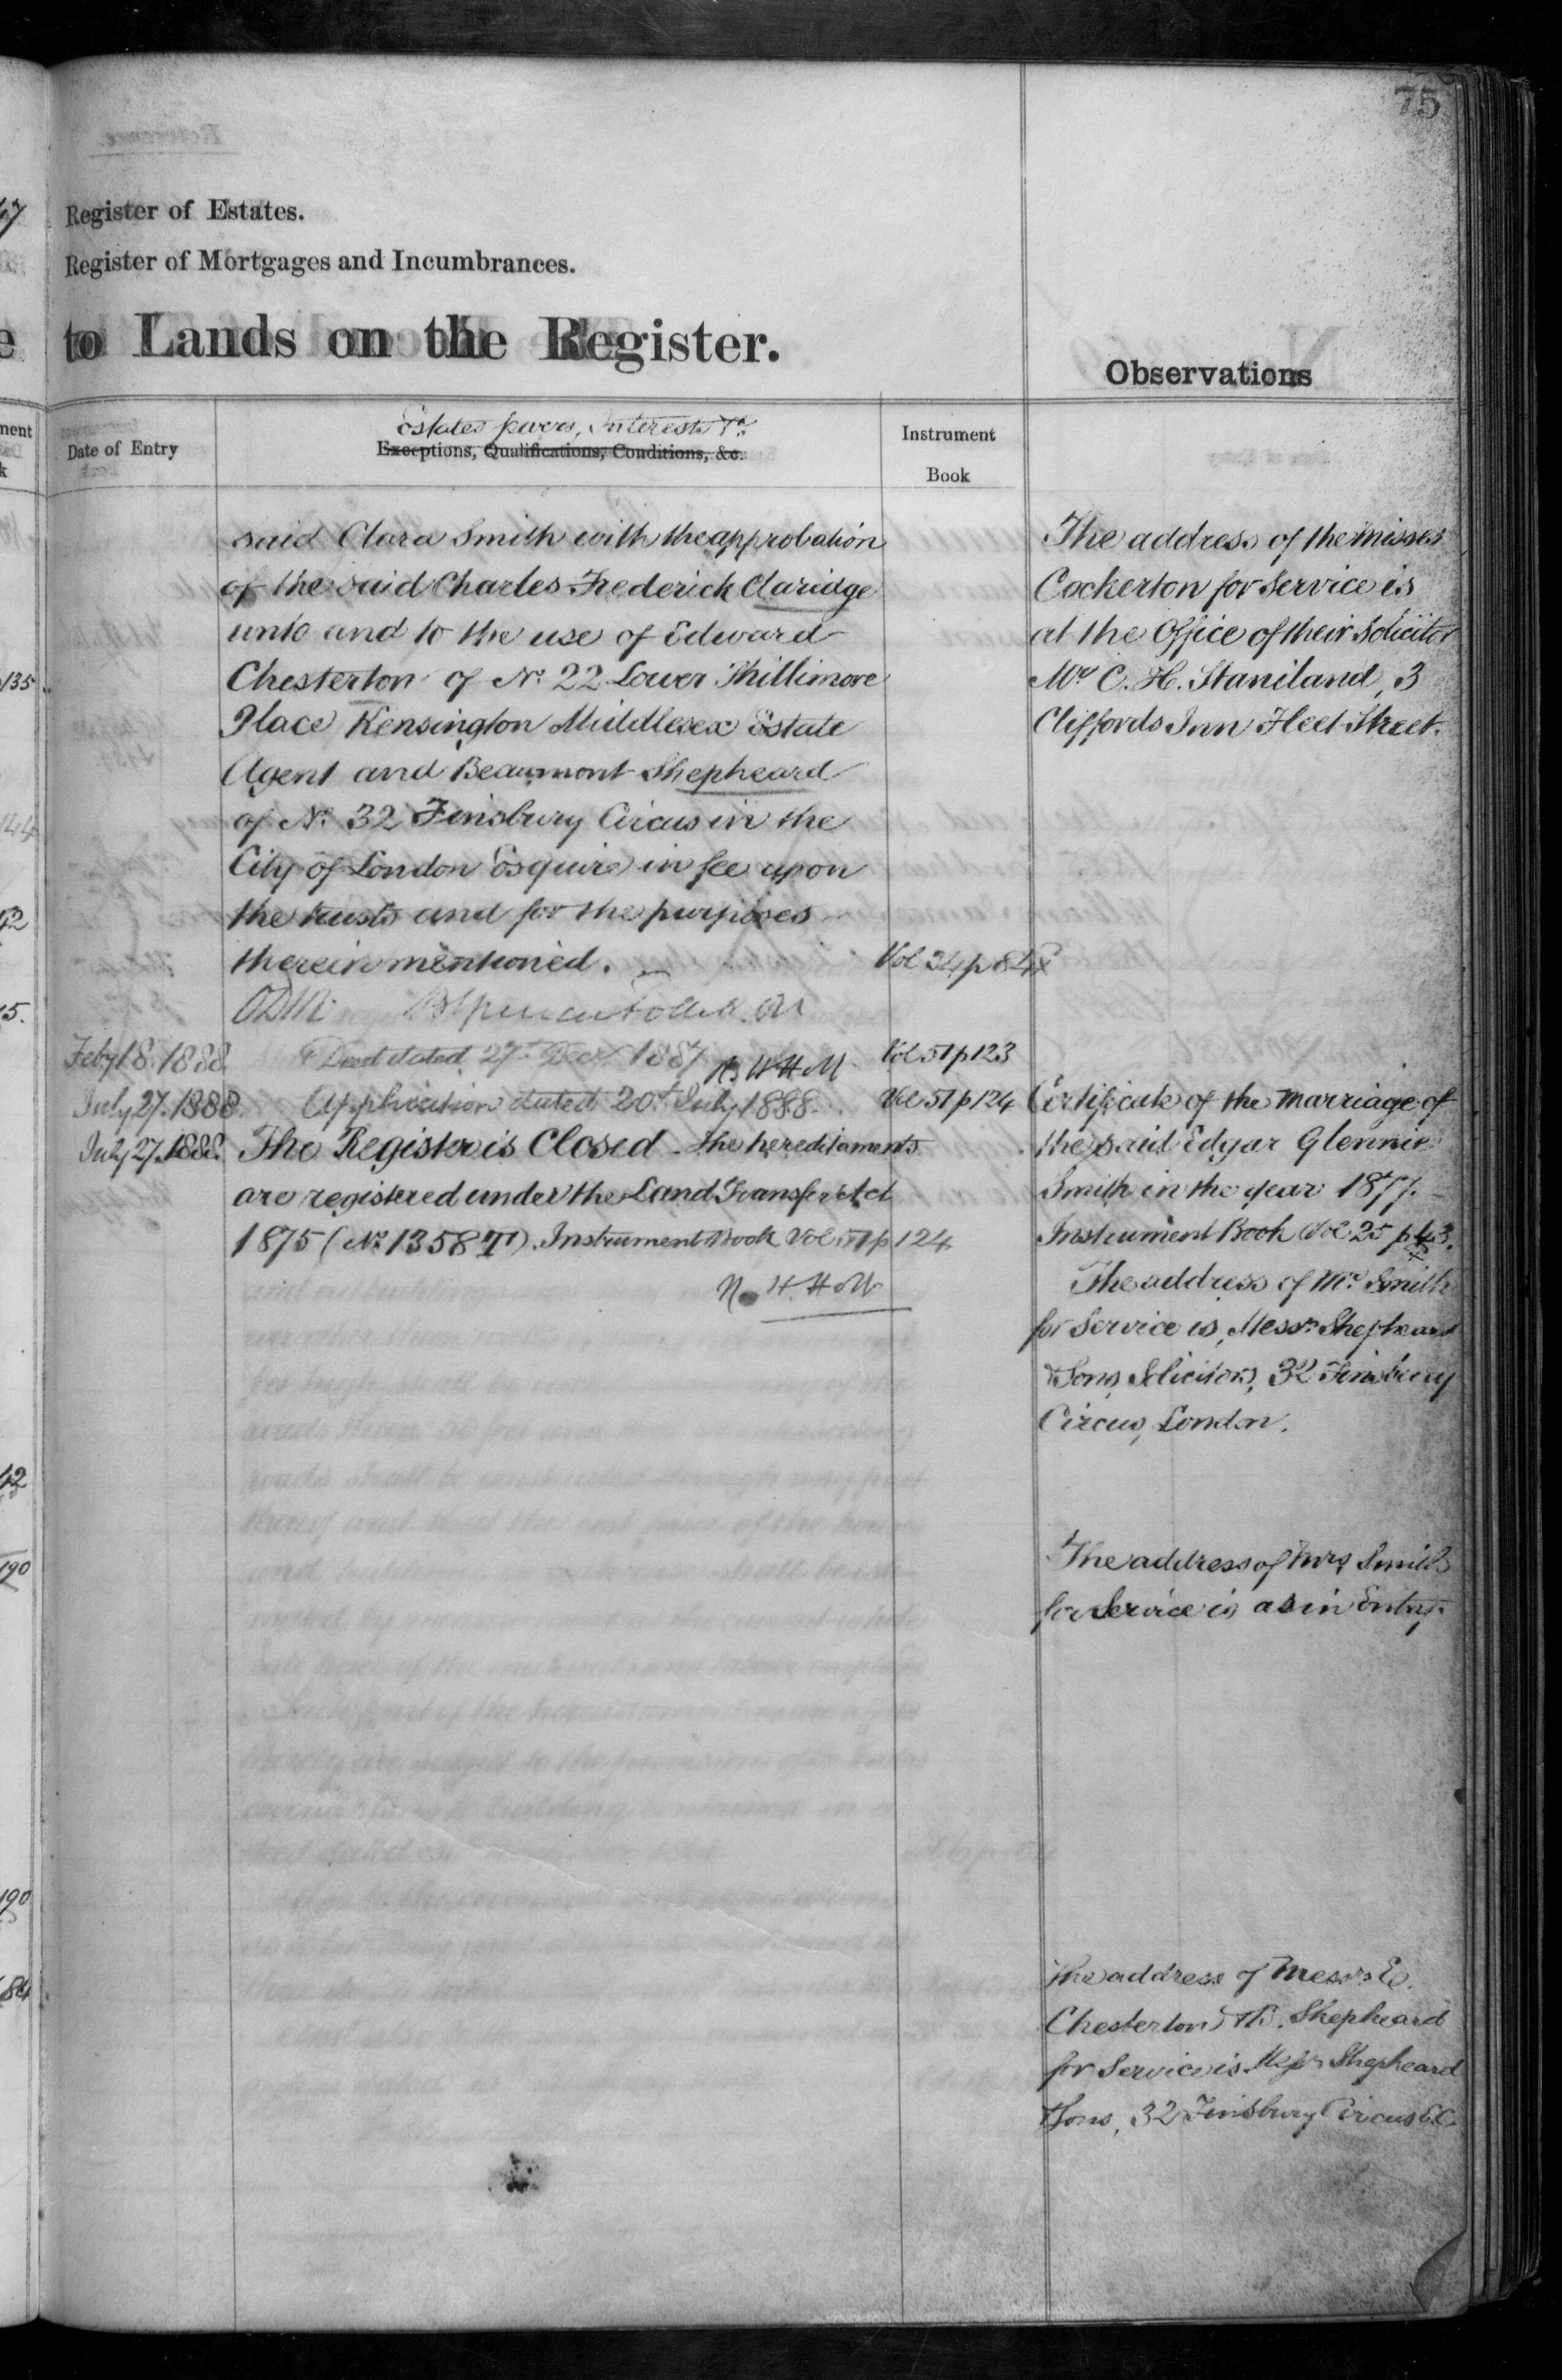 75
Register of Estates.
Register of Mortgages and Incumbrances.
to Lands on the Register.
Observations
Date of Entry
Estates powers, Interests &c.
Exceptions, Qualifications, Conditions, &c.
Instrument
Book
said Clara Smith with the approbation
of the said Charles Frederick Claridge
unto and to the use of Edward
Chesterton of No. 22 Lower Phillimore
Place Kensington Middlesex Estate
Agent and Beaumont Shepheard
of No. 32 Finsbury Circus in the
City of London Esquire in fee upon
the trusts and for the purposes
therein mentioned.
Vol 34 p 84
Feby 18. 1888
Deed dated 27th Decr 1887
N. H. H. M.
Vol 51 p 123
July 27. 1888.
Application dated 20th July 1888.
Vol 51 p 124
July 27. 1888.
The Register is Closed - the hereditaments
are registered under the Land Transfer Act
1875 (No. 1358 T). Instrument Book Vol 51 p 124
N. H. H. M.
The address of the Misses
Cockerton for Service is
at the Office of their Solicitor
Mr C. H. Staniland, 3
Cliffords Inn Fleet Street.
Certificate of the Marriage of
the said Edgar Glennie
Smith in the year 1877.
Instrument Book Vol 25 p 43.
The address of Mr. Smith
for Service is, Messrs Shepheard
& Sons, Solicitors, 32 Finsbury
Circus, London.
The address of Mrs Smith
for Service is as in Entry.
The address of Messrs E.
Chesterton & B. Shepheard
for Service is Messrs Shepheard
& Sons, 32 Finsbury Circus E.C.
135
190
190
84